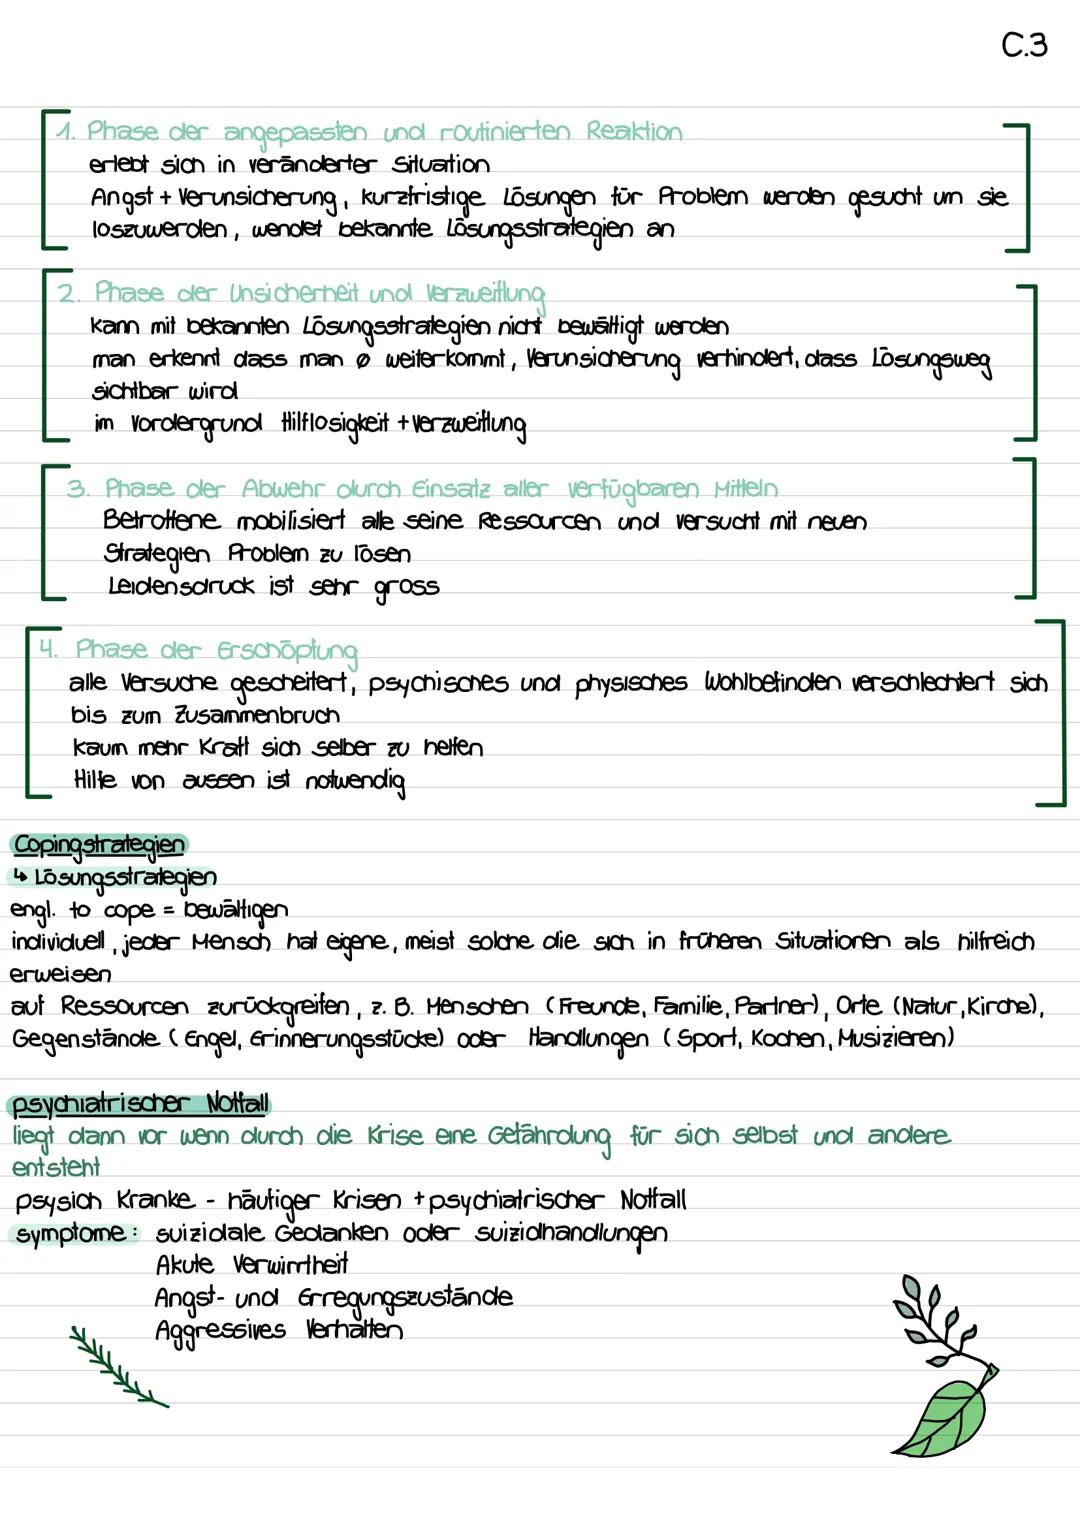 C.3
1. Phase der angepassten und routinierten Reaktion
erlebt sich in veränderter Situation
Angst + Verunsicherung, kurzfristige Lösungen für Problem werden gesucht um sie
loszuwerden, wendet bekannte Lösungsstrategien an
2. Phase der Unsicherheit und Verzweiflung
kann mit bekannten Lösungsstrategien nicht bewältigt werden
man erkennt dass man ø weiterkommt, Verunsicherung verhindert, dass Lösungsweg
sichtbar wird
im Vordergrund Hilflosigkeit + Verzweiflung
3. Phase der Abwehr durch Einsatz aller verfügbaren Mitteln
Betroffene mobilisiert alle seine Ressourcen und versucht mit neuen
Strategien Problem zu lösen
Leidensdruck ist sehr gross
4. Phase der Erschöpfung
alle Versuche gescheitert, psychisches und physisches Wohlbefinden verschlechtert sich
bis zum Zusammenbruch
kaum mehr Kraft sich selber zu helfen
Hilfe von aussen ist notwendig
Copingstrategien
↳ Lösungsstrategien
engl. to cope = bewältigen
individuell, jeder Mensch hat eigene, meist solche die sich in früheren Situationen als hilfreich
erweisen
auf Ressourcen zurückgreifen, z. B. Menschen (Freunde, Familie, Partner), Orte (Natur, Kirche),
Gegenstände (Engel, Erinnerungsstücke) oder Handlungen (Sport, Kochen, Musizieren)
psychiatrischer Notfall
liegt dann vor wenn durch die Krise eine Gefährdung für sich selbst und andere
entsteht
psysich Kranke - häufiger Krisen + psychiatrischer Notfall
symptome: suizidale Gedanken oder suizidhandlungen
Akute Verwirrtheit
Angst- und Erregungszustände
Aggressives Verhalten